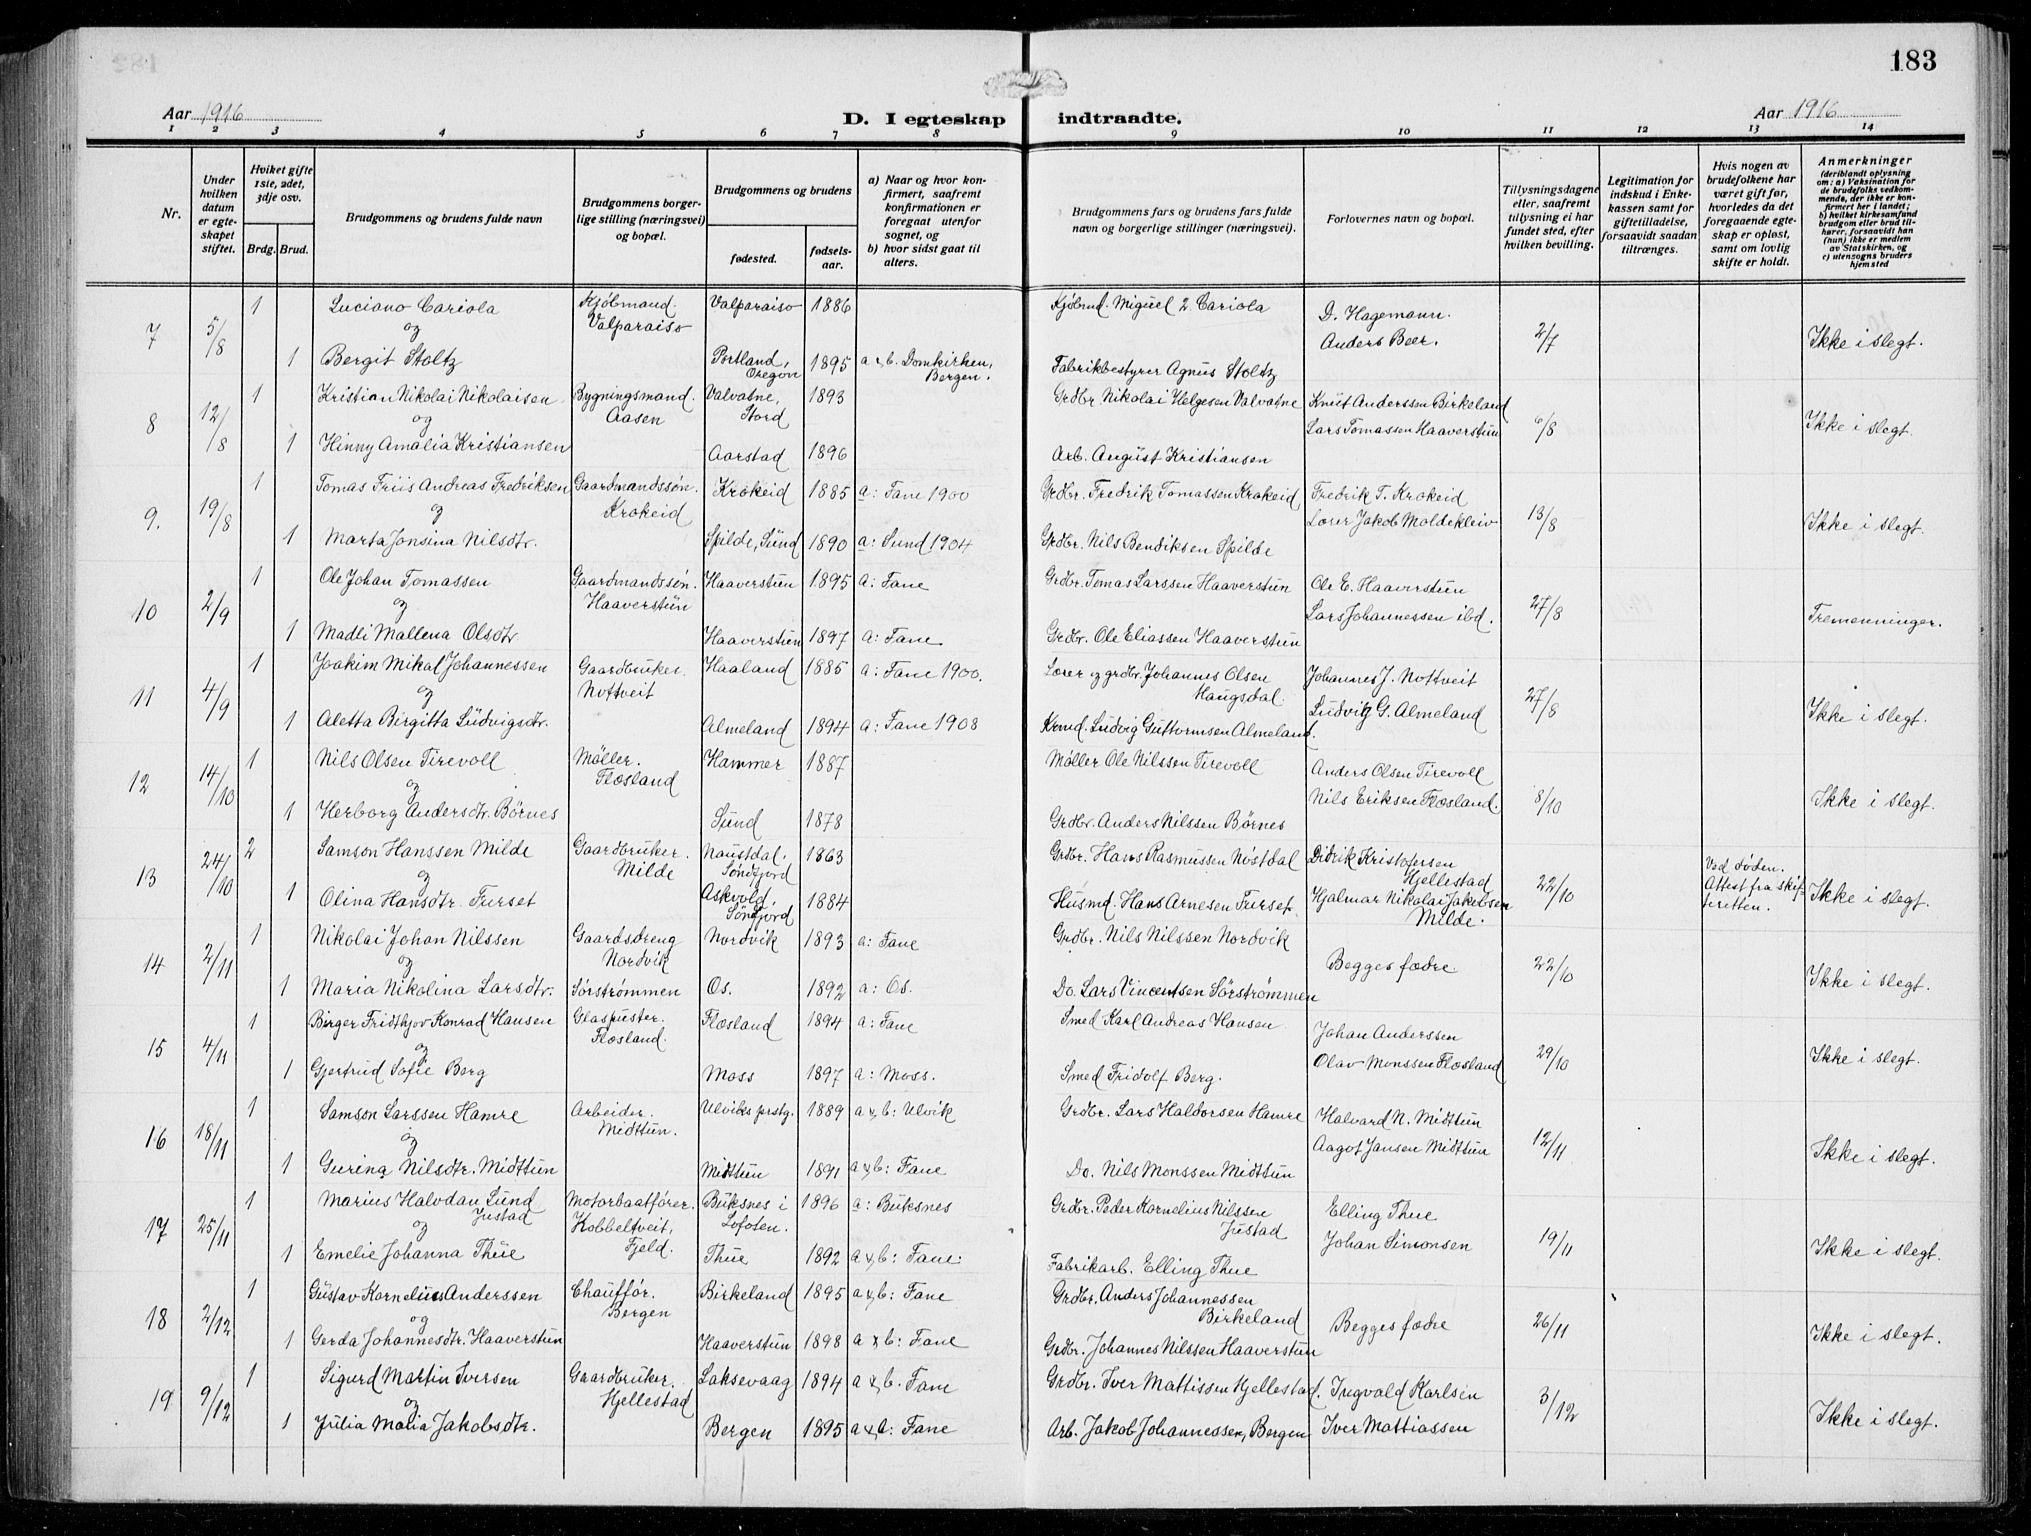 183
Aar 1916
D. I egteskap indtraadte.
Aar 1916
1 2 3 4 5 6 7 8 9 10 11 12 13 14
Nr.
Under hvilken datum er egteskapet stiftet.
Hviket gifte 1ste, 2det, 3dje osv.
Brdg. Brud.
Brudgommens og brudens fulde navn
Brudgommens borgerlige stilling (næringsvei) og bopæl.
Brudgommens og brudens
fødested.
fødsels-aar.
a) Naar og hvor konfirmert, saafremt konfirmationen er foregaat utenfor sognet, og
b) hvor sidst gaat til alters.
Brudgommens fars og brudens fars fulde navn og borgerlige stillinger (næringsvei).
Forlovernes navn og bopæl.
Tillysningsdagene eller, saafremt tillysning ei har fundet sted, efter hvilken bevilling.
Legitimation for indskud i Enkekassen samt for giftetilladelse, forsaavidt saadan tiltrænges.
Hvis nogen av brudefolkene har været gift før, hvorledes da det foregaaende egteskap er opløst, samt om lovlig skifte er holdt.
Anmerkninger (deriblandt oplysning om: a) Vaksination for de brudefolks vedkommende, der ikke er konfirmert her i landet; b) hvilket kirkesamfund brudgom eller brud tilhører, forsaavidt han (hun) ikke er medlem av Statskirken, og c) utensogns bruders hjemsted
7 5/8 1 Luciano Cariola Kjöbmand. Valparaiso Valparaiso 1886 Kjöbmd. Miguel 2 Cariola D. Hagemann. 2/7 Ikke i slegt.
og Anders Beer.
1 Bergit Stoltz Portland, Oregon 1895 a & b. Domkirken, Bergen. Fabrikbestyrer Agnus Stoltz
8 12/8 1 Kristian Nikolai Nikolaisen Bygningsmand. Aasen Valvatne, Stord 1893 Grdbr. Nikolai Helgesen Valvatne Knut Anderssen Birkeland 6/8 Ikke i slegt.
og Lars Tomassen Haaverstun
1 Hinny Amalia Kristiansen Aarstad 1896 Arb. August Kristiansen
9. 19/8 1 Tomas Friis Andreas Fredriksen Gaardmandssøn. Krokeid Krokeid 1885 a: Fane 1900 Grdbr. Fredrik Tomassen Krokeid Fredrik T. Krokeid 13/8 Ikke i slegt.
og Lærer Jakob Moldekleiv
1 Marta Jonsina Nilsdtr. Spilde, Sund 1890 a: Sund 1904 Grdbr. Nils Bendiksen Spilde
10 2/9 1 Ole Johan Tomassen Gaardmandssøn. Haaverstun Haaverstun 1895 a: Fane Grdbr. Tomas Larssen Haaverstun Ole E. Haaverstun 27/8 Tremenninger.
og Lars Johannessen ibd.
1 Madli Mallena Olsdtr Haaverstun 1897 a: Fane Grdbr. Ole Eliassen Haaverstun
11 4/9 1 Joakim Mikal Johannessen Gaardbruker. Nottveit Haaland 1885 a: Fane 1900. Lærer og grdbr. Johannes Olsen Haugsdal Johannes J. Nottveit 27/8 Ikke i slegt.
og Ludvig G. Almeland
1 Aletta Birgitta Ludvigsdtr. Almeland 1894 a: Fane 1908 Krmd. Ludvig Guttormsen Almeland.
12 14/10 1 Nils Olsen Tirevoll Møller. Flæsland Hammer 1887 Møller Ole Nilssen Tirevoll Anders Olsen Tirevoll 8/10 Ikke i slegt.
og Nils Eriksen Flæsland.
1 Herborg Andersdtr. Børnes Sund 1878 Grdbr. Anders Nilssen Børnes
13 24/10 2 Samson Hanssen Milde Gaardbruker. Milde Naustdal, Søndfjord 1863 Grdbr. Hans Rasmussen Nøstdal Didrik Kristofersen Hjellestad 22/10 Ved døden. Attest fra skifteretten. Ikke i slegt.
og
1 Olina Hansdtr. Furset Askvold, Søndfjord 1884 Husmd. Hans Arnesen Furset Hjalmar Nikolai Jakobsen Milde.
14 2/11 1 Nikolai Johan Nilssen Gaardsdreng Nordvik Nordvik 1893 a: Fane Grdbr. Nils Nilssen Nordvik Begges fædre 22/10 Ikke i slegt.
og
1 Maria Nikolina Larsdtr. Sørstrømmen Os. 1892 a: Os. Do. Lars Vincentsen Sörströmmen
15 4/11 1 Birger Fridthjov Konrad Hansen Glaspuster. Flæsland. Flæsland 1894 a: Fane Smed Karl Andreas Hansen Johan Anderssen 29/10 Ikke i slegt.
og Olav Monssen Flæsland
1 Gjertrud Sofie Berg Moss 1897 a: Moss. Smed Fridolf Berg.
16 18/11 1 Samson Larssen Hamre Arbeider. Midttun. Ulviks prstg. 1889 a & b: Ulvik Grdbr. Lars Haldorsen Hamre Halvard N. Midttun 12/11 Ikke i slegt.
og Aagot Jansen Midttun
1 Gurina Nilsdtr. Midttun Midttun 1891 a & b: Fane Do. Nils Monssen Midttun
17 25/11 1 Marius Halvdan Sund Justad Motorbaatfører. Kobbeltveit, Fjeld. Buksnes i Lofoten. 1896 a: Buksnes Grdbr. Peder Kornelius Nilssen Justad Elling Thue 19/11 Ikke i slegt.
og Johan Simonsen
1 Emelie Johanna Thue Thue 1892 a & b: Fane. Fabrikarb. Elling Thue
18 2/12 1 Gustav Kornelius Anderssen Chauffór. Bergen Birkeland 1895 a & b: Fane Grdbr. Anders Johannessen Birkeland Begges fædre 26/11 Ikke i slegt.
og
1 Gerda Johannesdtr. Haaverstun Haaverstun 1898 a & b: Fane Grdbr. Johannes Nilssen Haaverstun
19 9/12 1 Sigurd Martin Iversen Gaardbruker. Hjellestad Laksevaag 1894 a & b. Fane Grdbr. Iver Mattissen Hjellestad. Ingvald Karlsen 3/12 Ikke i slegt.
og
1 Julia Maria Jakobsdtr. Bergen 1895 a & b: Fane Arb. Jakob Johannessen, Bergen Iver Mattiassen